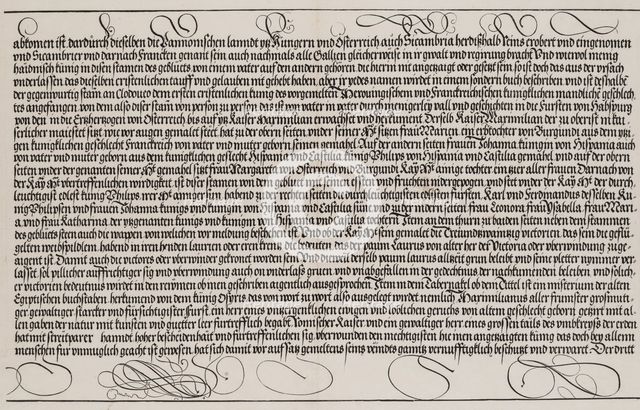 abkomen ist dardurch dieselben die Pannonischen lanndt yꜩ Hungern und Osterreich auch Sicambria herdißhalb Reins erobert und eingenomen
und Sicambrier und darnach Francken genant sein auch nachmals alle Gallien gleicherweiß in ir gwalt und regirung bracht Und wievol menig
haidnisch kunig in disen stamen des geblůets von einem vater auf den andern gehoren des hierinn mit angezaigt oder gesetzt sein so ist doch das aus der ursach
underlassen das dieselben cristenlichen tauff und glauben mit gehebt haben aber ir yedes namen wirdet in einem sondern buch beschriben und ist deshalbe
der gegenwurtig stam an Clodoveo dem ersten cristenlichen kunig des vorgemelten Merovingischen und Franckreichischen kunigklichen mandliche geschlech
tes angefangen von dem also diser stam von person zu person das ist von vater in vater durch menigerley vall und geschichten in die Fursten von Habspurg
von den in die Ertzherzogen von Osterreich bis auf yꜩ Kaiser Maximilian erwachst und herkumbt Derselb Kaiser Maximilian der zu oberst in kai
serlicher maiestet sitzt wie vor augen gemalet steet hat zu der obern seiten under seiner Mt sitzen frau Marien ein erbtochter von Burgundi aus dem yꜩi
gen kunigklichen geschlecht Franckreich von vater und muter geborn seinen gemahel Auf der andern seiten frauen Johanna kunigin von Hispania auch
von vater und muter geborn aus dem kunigklichen geslecht Hispania und Castilia kunig Philips von Hispania und Castilia gemahel und auf der obern
seiten under der genanten seiner Mt gemahel sitzt frau Margareth von Osterreich und Burgundi Kay Mt ainige tochter ein zier aller frauen Darnach von
der Kay Mt vbertreffenlichen wirdigkeit ist diser stamen von dem geblůet mit seinen essten und fruchten nidergepogen und stet under der Kay Mt der durch
leuchtigist edlest kunig Philips irer Mt ainiger sun habend zu der rechten seiten die durchleuchtigisten edlisten fursten Karl und Ferdinandus desselben Ku
nig Philipsn und frauen Johanna kunigs und kunigin von Hispania und Castilia sun und zu der anndern seiten frau Leonora frau Ysabella frau Mari
a und frau Katharina der yꜩgenanten kunigs und kunigin von Hispania und Castilia tochtern Item an den thurn zu baiden seiten neben den stammen
des geblůets steen auch die wapen von welichen vor meldung beschehen ist Und ob der Kay Mt sein gemalet die Dreiundzwaintzig victorien das sein die geflů
gelten weibspildern habend in iren henden laureoln oder eeren krenntz die bedeuten das der paum Laurus von alter her de Victoria oder vberwindung zuge
aigent ist Damit auch die victores oder vberwinder gekront worden sein Und dieweil derselb paum laurus allzeit grun belebt und seine pletter nymmer ver
lasset sol pillicher auffruchtiger sig und vberwindung auch on underlaß gruen und unabgefallen in der gedechtnus der nachkumenden beleiben und solich
er victorien bedeutnus wirdet in den reymen oben inen geschriben aigentlich ausgesprochen Item inn dem Tabernackel ob dem Tittel ist ein misterium der alten
Egiptischen buchstaben herkumend von dem kunig Osyris das von wort zu wort also ausgelegt wirdet nemlich Maximilianus aller frumster großmuti
ger gewaltiger starcker und fursichtigister Furst ein herr eines unzergenklichen ewigen und loblichen geruchs von altem geschlecht geborn geziert mit al
len gaben der natur mit kunsten und gueter leer furtrefflich begabt Romischer Kaiser und ein gewaltiger herr eines grossen tails des umbkreyß der erden
hat mit streitparer hannd hoher bescheidenhait und furtreffenlichen sig vberwunden den mechtigisten hie innen angezaigten kung das doch bey allenn
menschen fur unmuglich geacht ist gewesen hat sich damit vor auffsatz gemeltens seins veindts gantz vernufftigklich beschutzt und verwaret Der dritt